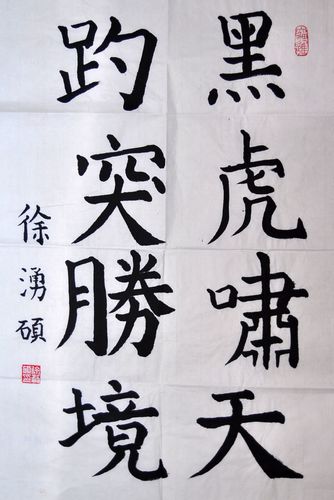 黑虎嘯天
趵突勝境
徐湧碩